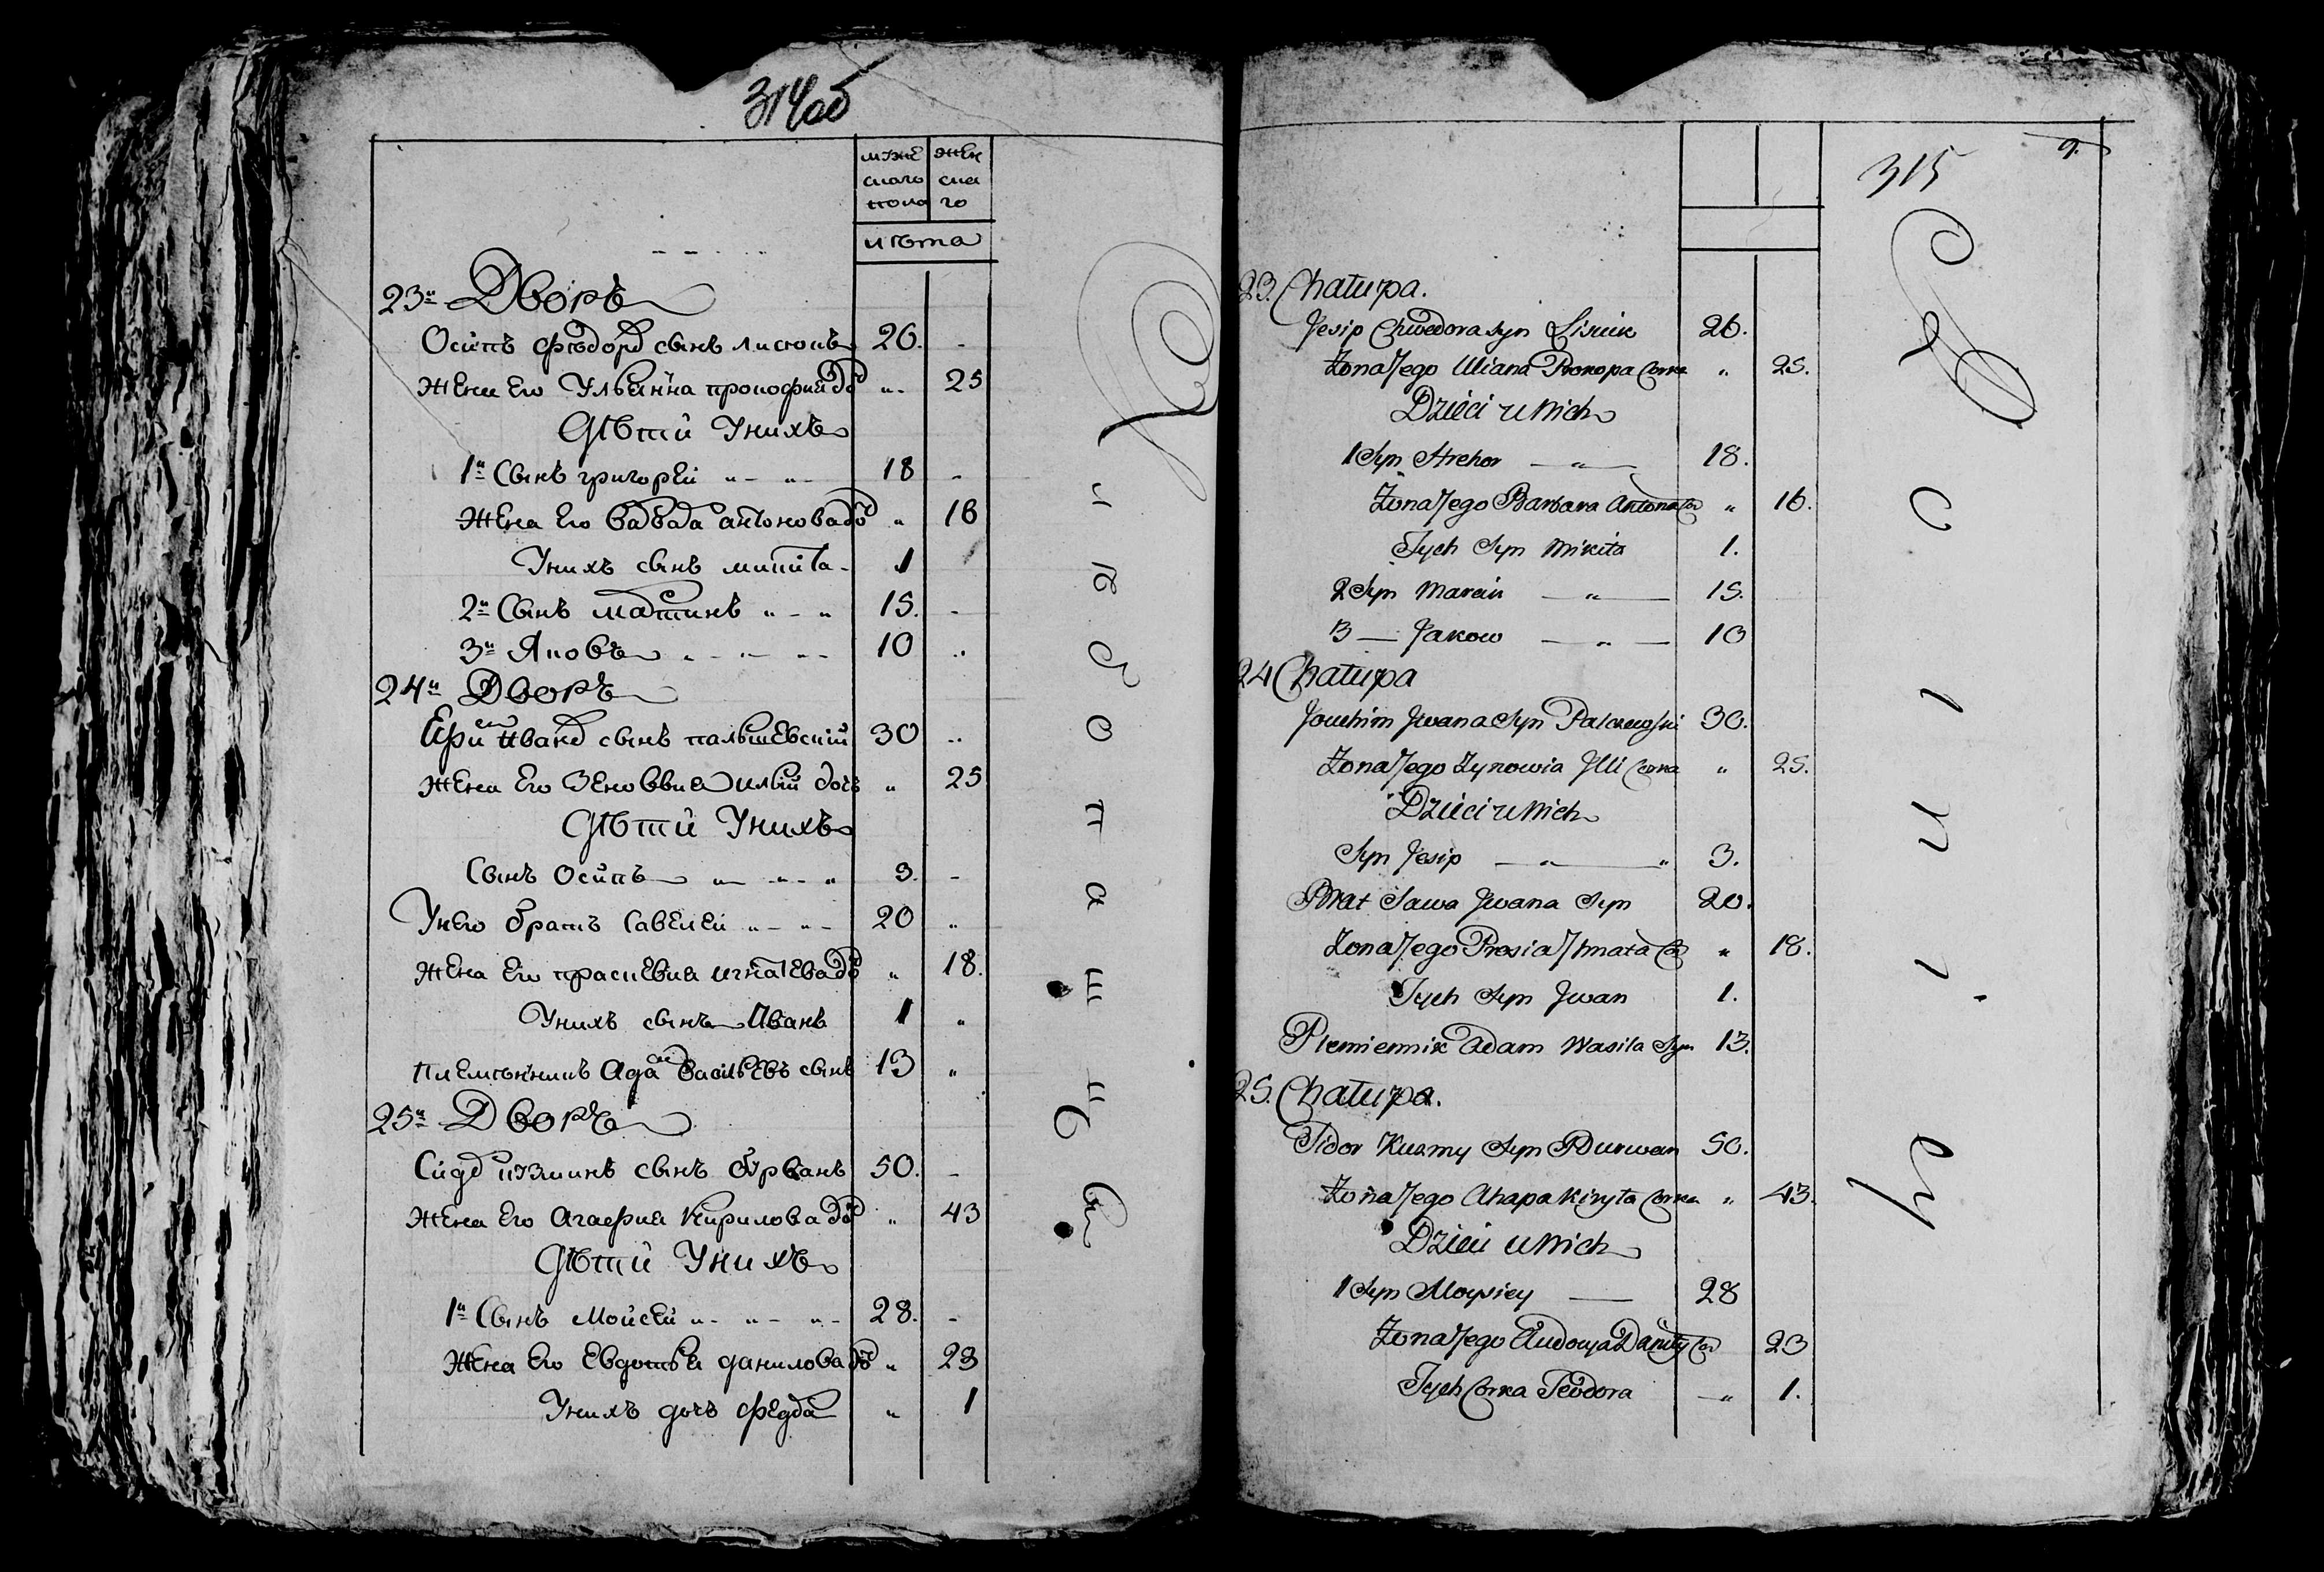 314об
мужескаго пола
женскаго
лѣта
23й Дворъ
Осипъ Федоръ сынъ лисюкъ 26.
Жена Его Ульянна прокофий доч „ 25
Дѣти Унихъ
1й Сынъ григорей 18
Жена Его варвара антонова доч „ 16
Унихъ сынъ микита 1
2й Сынъ мартинъ 15.
3й Яковъ 10
24й Дворъ
иванъ сынъ пальчевский 30
Жена Его Зеновия илий дочъ „ 25
Дѣти Унихъ
Сынъ Осипъ 3.
Унего братъ Савелей 20
Жена Его прасковия игнатева доч „ 18.
Унихъ сынъ Иванъ 1
племянникъ Адам Василъевъ сынъ 13
25й Дворъ
Сидор кузминъ сынъ бурванъ 50.
Жена Его Агафия Кирилова доч „ 43
Дѣти Унихъ
1й Сынъ Мойсей 28.
Жена Его Евдотья данилова доч „ 23
Унихъ дочъ федора „ 1
315
9.
23. Chałupa.
Jesip Chwedora syn Lisiuk 26.
Żona Jego Uliana Prokopa Corka „ 25.
Dzieci u Nich
1 Syn Hrehor 18.
Żona Jego Barbara Antona Cor „ 16.
Tych Syn Mikita 1.
2 Syn Marcin 15.
3 — Jakow 10
24 Chałupa
Jouchim Jwana Syn Palczewski 30.
Żona Jego Zynowia Jlli Corka „ 25.
Dzieci u Nich
Syn Jesip 3.
Brat Sawa Jwana Syn 20.
Żona Jego Prosia Jhnata Cor „ 18.
Tych Syn Jwan 1.
Plemiennik Adam Wasila Syn 13.
25. Chałupa.
Sidor Kuzmy Syn Burwan 50.
Żona Jego Ahapa Kiryła Corka „ 43.
Dzieci u Nich
1 Syn Moysiey 28
Żona Jego Audocya Daniły Cor 23
Tych Corka Teodora „ 1.